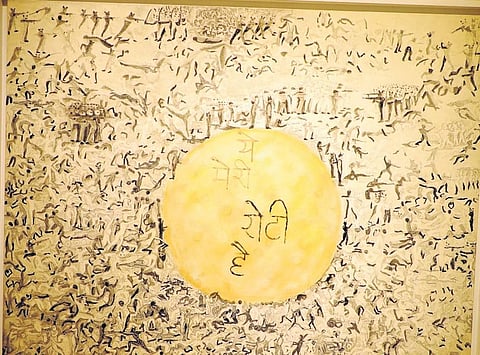 ये
मेरी
रोटी
है